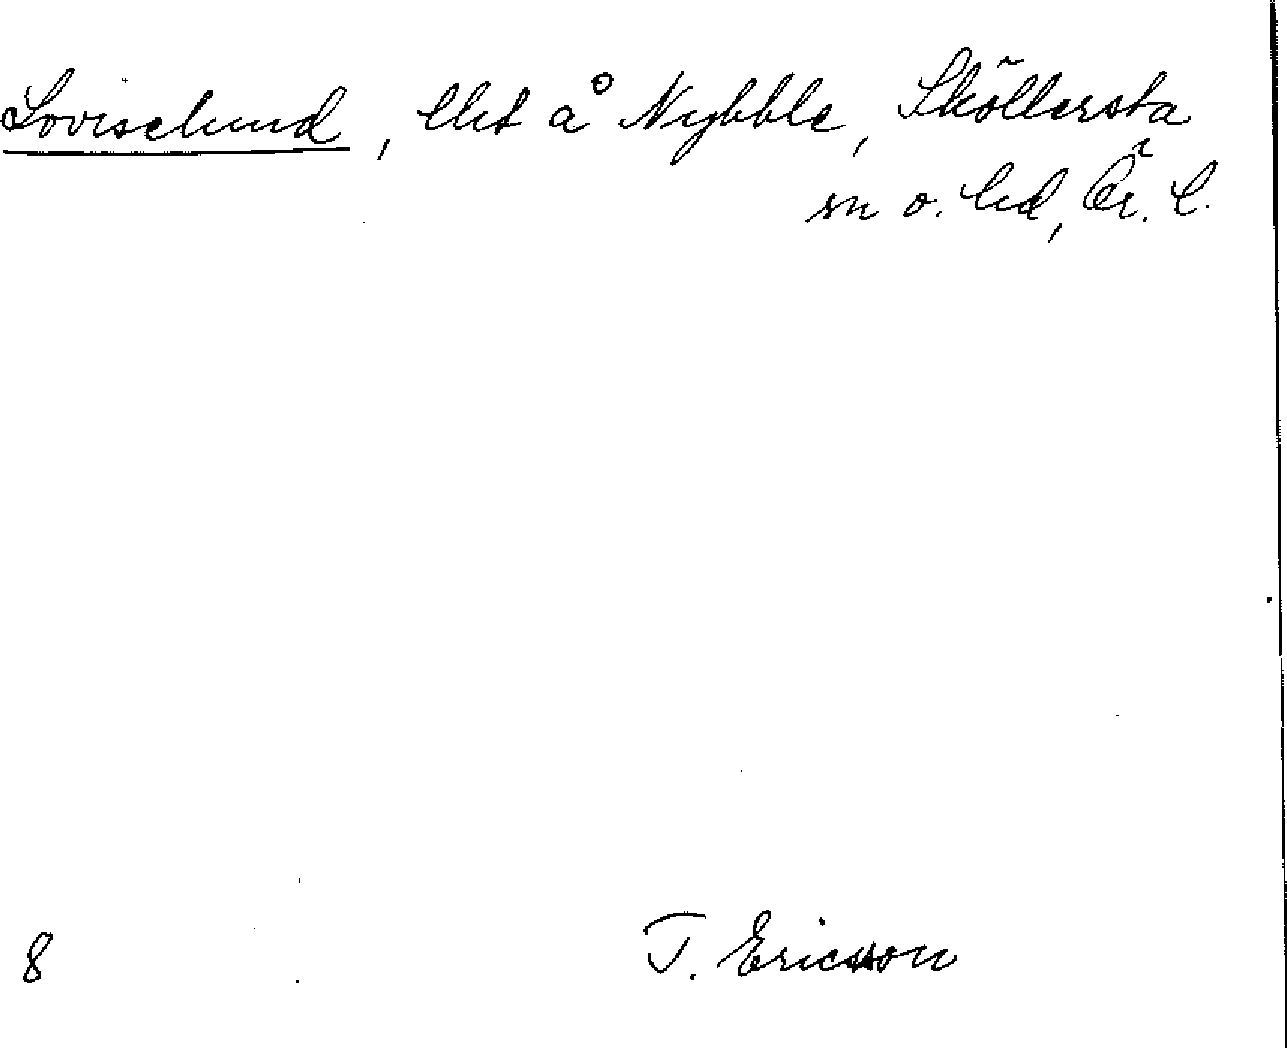 Loviselund, lht å Nybble, Sköllersta
sn o. hd, Ör. l.
8
T. Ericsson